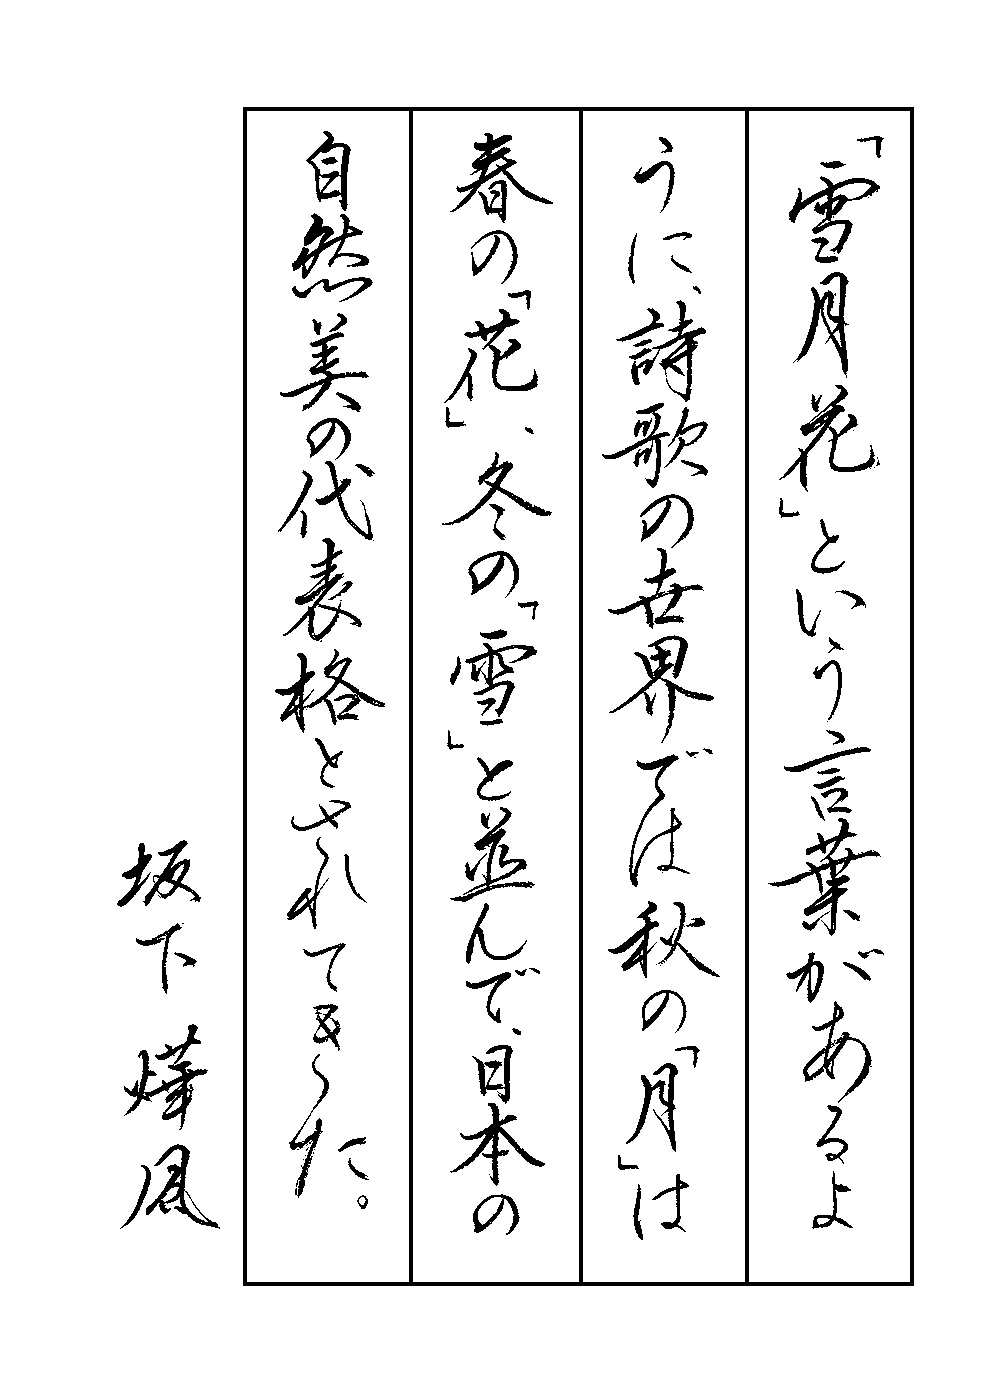 「雪月花」という言葉があるよ
うに、詩歌の世界では秋の「月」は
春の「花」、冬の「雪」と並んで、日本の
自然美の代表格とされてきた。
坂下 燁風